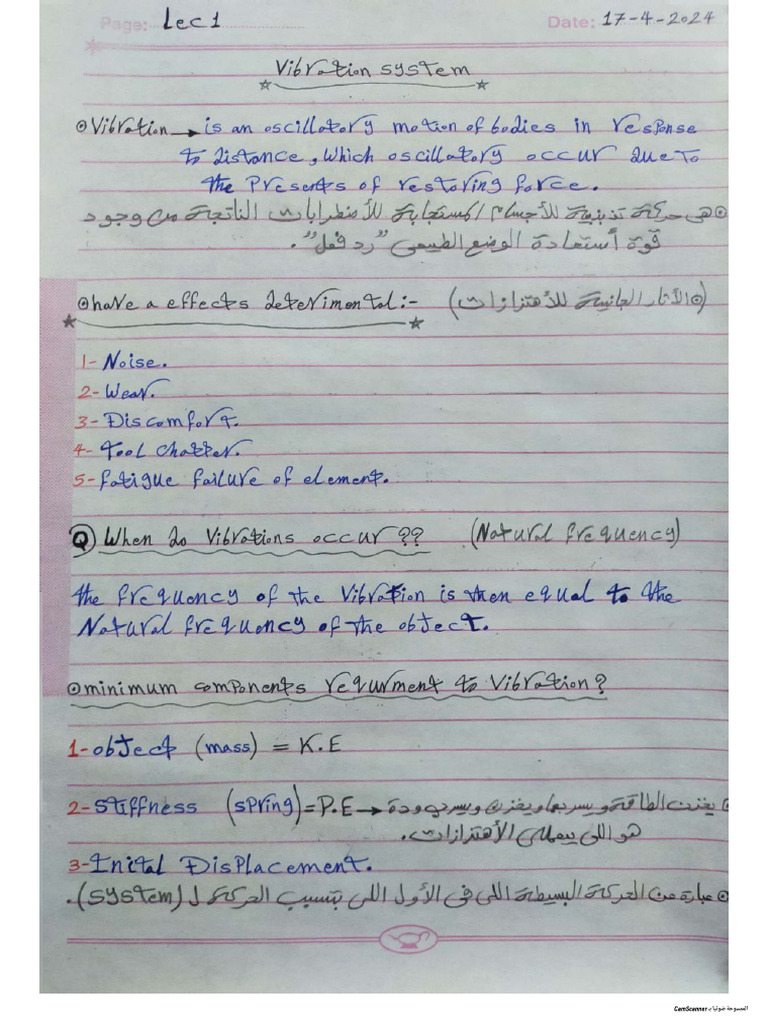 Page: Lec 1 Date: 17-4-2024
Vibration system
Vibration → is an oscillatory motion of bodies in response
to distance, which oscillatory occur due to
the Presents of restoring force.
هى حركة تذبذبية للأجسام المستجابة للأضطرابات الناتجة من وجود
قوة أستعادة الوضع الطبيعى "رد فعل".
have a effects deterimental:- (الأثار الجانبية للأهتزازات)
1- Noise.
2- Wear.
3- Discomfort.
4- Tool chatter.
5- fatigue failure of element.
Q) When do Vibrations occur?? (Natural frequency)
the frequency of the Vibration is then equal to the
Natural frequency of the object.
minimum components requrment to Vibration?
1- object (mass) = K.E
2- Stiffness (spring) = P.E → يخزن الطاقة ويسربها ويخزن ويسرب ودة
هو اللى بيعملى الأهتزازات.
3- Inital Displacement.
عبارة عن الحركة البسيطة اللى فى الأول اللى بتسبب الحركة ل (system).
الممسوحة ضوئيا بـ CamScanner